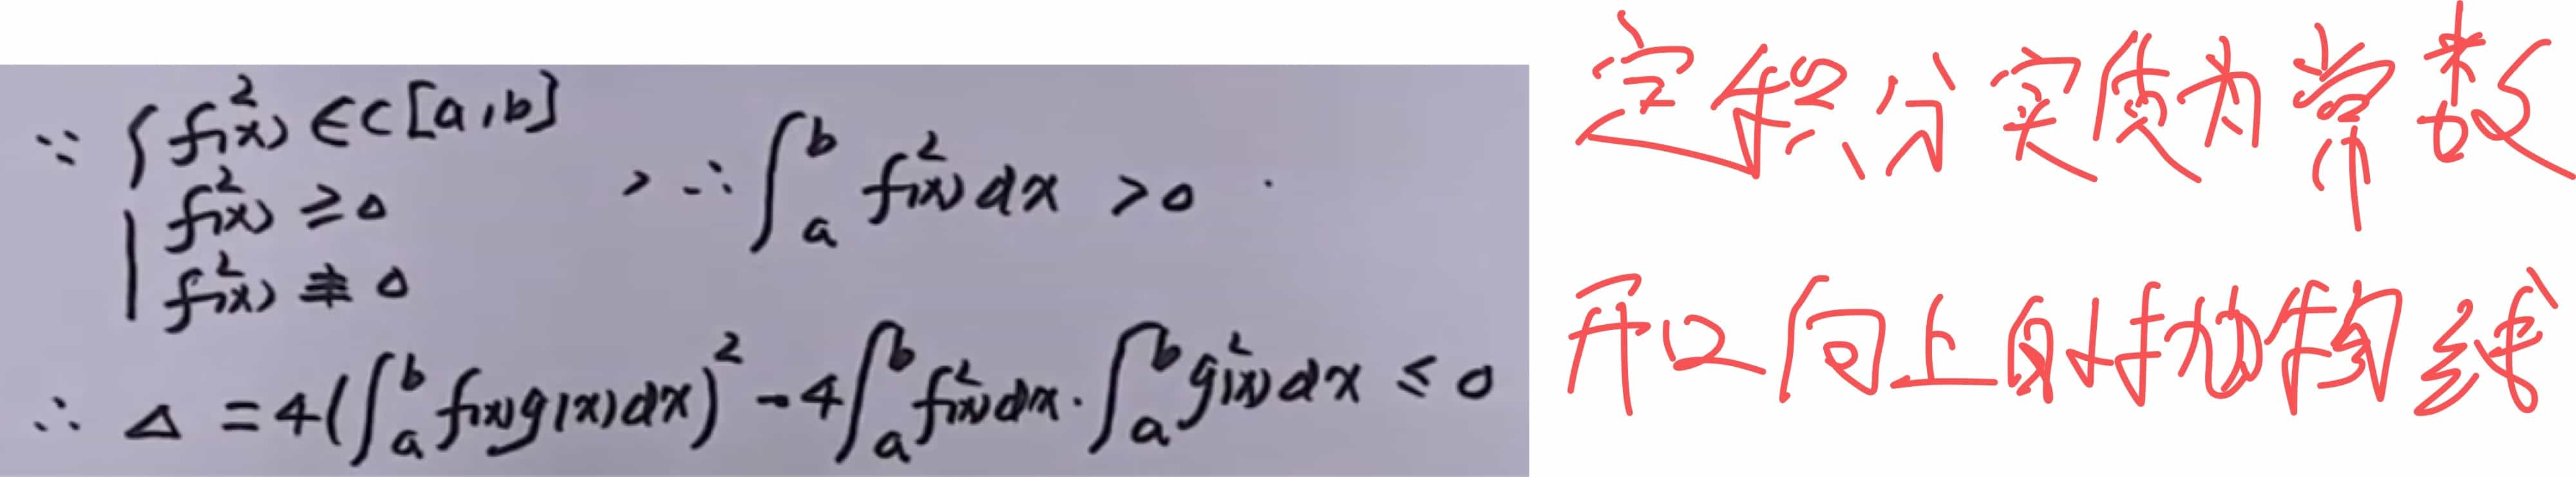 ∵ { f²(x) ∈ C[a,b]
f²(x) ≥ 0
f²(x) ≢ 0
, ∴ ∫_a^b f²(x) dx > 0 .
∴ Δ = 4(∫_a^b f(x)g(x)dx)² - 4∫_a^b f²(x)dx · ∫_a^b g²(x)dx ≤ 0
定积分实质为常数
开口向上的抛物线